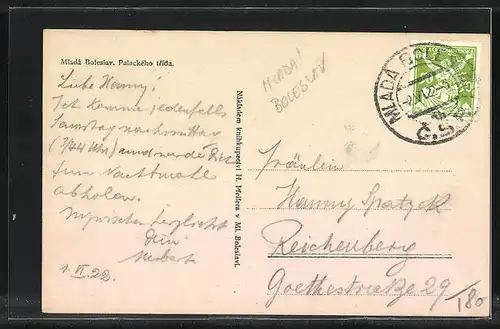 Mladá Boleslav. Palackého třída.
Liebe Hanny!
Ich komme jedenfalls
Samstag nachmittag
(3/44 Uhr) und werde Dich
zum Nachtmahl
abholen.
herzlichst
Dein
Herbert
1. VI. 22.
MLADÁ!
BOLESLAV
Nákladem knihkupectví H. Pfeifera v Ml. Boleslavi.
MLADÁ BOLESLAV
Fräulein
Hanny Spatzek
Reichenberg
Goethestraße 29
180